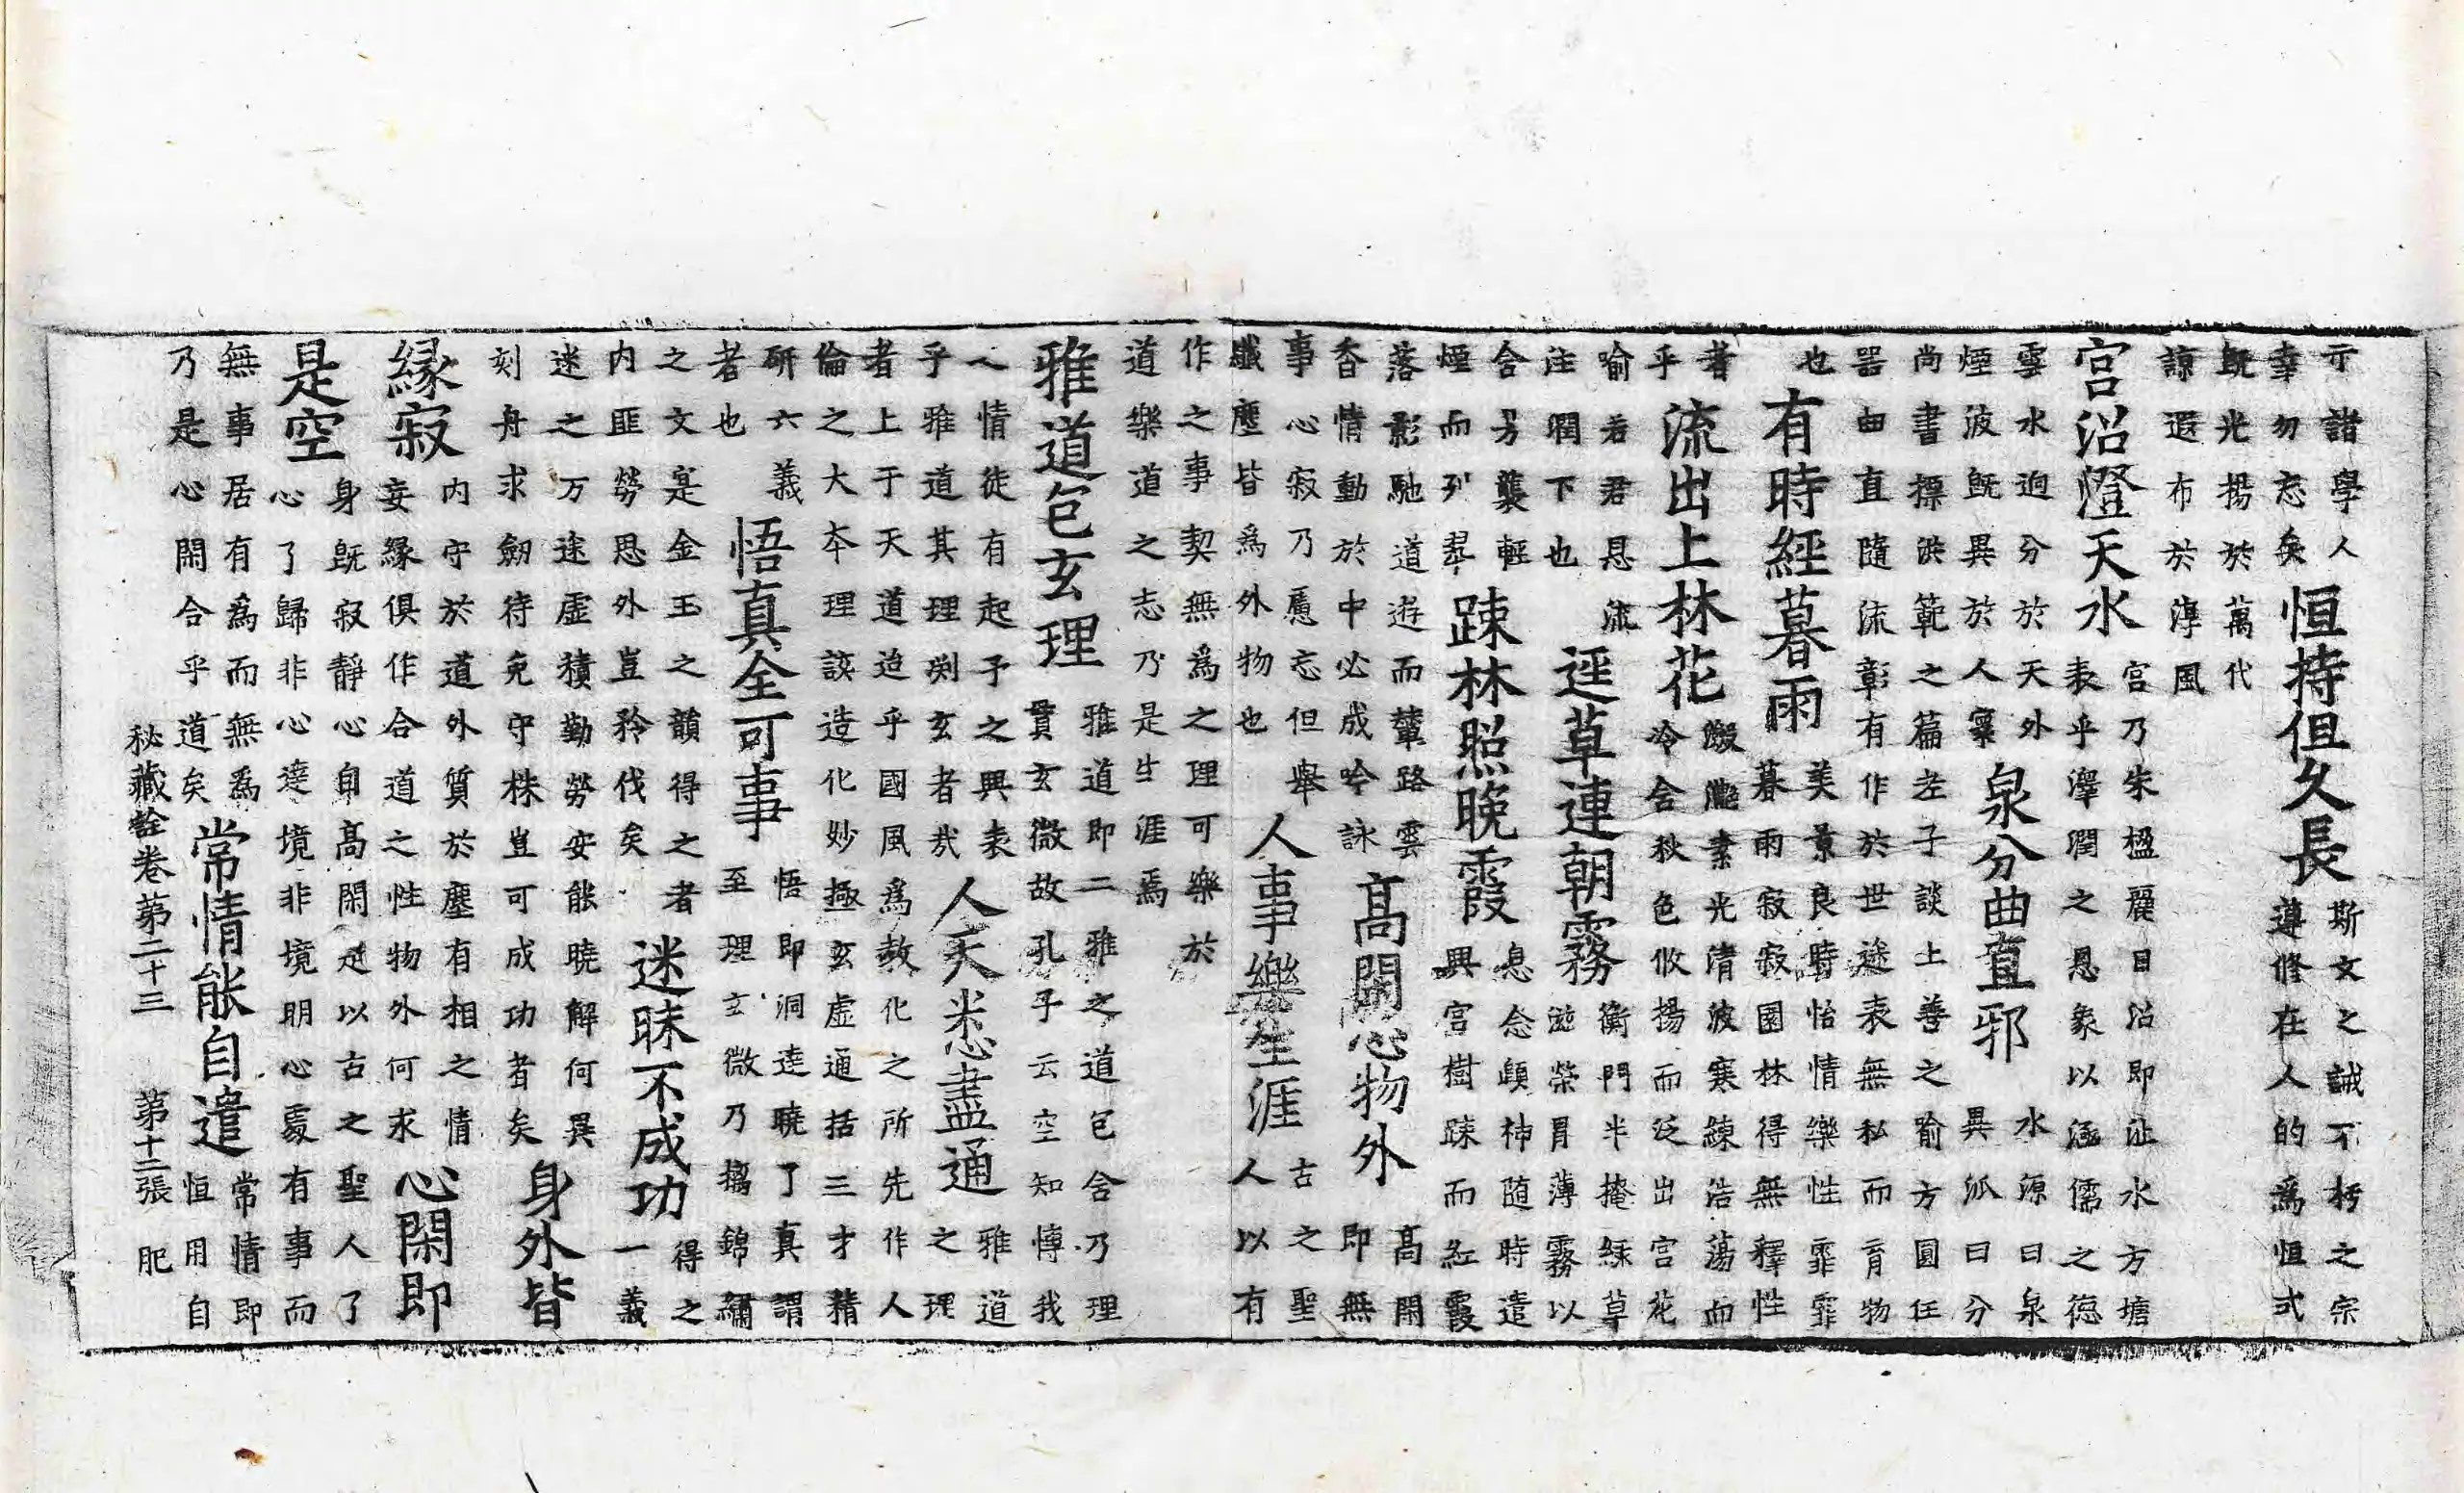 示諸學人
幸勿忘矣
恒持但久長
斯文之誡不朽之宗
遵修在人的為恒式
旣光揚於萬代
諒遐布於淳風
宮沼澄天水
宮乃朱楹麗日沼即沚水方塘
表乎澤潤之恩象以涵儒之德
雲水逈分於天外
煙波旣異於人寰
泉分曲直邪
水源曰泉
異派曰分
尚書摽洪範之篇老子談上善之喻方圓任
器曲直隨流彰有作於世迷表無私而育物
也
有時經暮雨
美景良時怡情樂性霏霏
暮雨寂寂園林得無釋性
者
乎
流出上林花
瀲灩素光清波寒練浩蕩而
冷含秋色收揚而泛出宮花
喻若君恩流
注潤下也
逕草連朝霧
衡門半掩綠草
滋榮冐薄霧以
含芳襲輕
煙而列翠
踈林照晚霞
息念頥神随時遣
興宮樹踈而紅霞
落影馳道遊而輦路雲
香情動於中必成吟詠
髙閑心物外
髙閑
即無
事心寂乃慮忘但舉
纖塵皆為外物也
人事樂生涯
古之聖
人以有
作之事契無為之理可樂於
道樂道之志乃是生涯焉
雅道包玄理
雅道即二雅之道包含乃理
貫玄微故孔子云空知愽我
人情徒有起予之興表
乎雅道其理淵玄者㢤
人天悉盡通
雅道
之理
者上于天道迨乎國風為敎化之所先作人
倫之大夲理該造化妙極玄虛通括三才精
研六義
者也
悟真全可事
悟即洞達曉了真謂
至理玄微乃摛錦繡
之文寔金玉之韻得之者
内匪勞思外豈矜伐矣
迷昧不成功
得之
一義
迷之万途虛積勤勞安能曉解何異
刻舟求劔待兎守株豈可成功者矣
身外皆
緣寂
内守於道外質於塵有相之情
妄緣俱作合道之性物外何求
心閑即
是空
身旣寂靜心自髙閑是以古之聖人了
心了歸非心達境非境明心處有事而
無事居有為而無為
乃是心閑合乎道矣
常情能自遣
常情即
恒用自
秘藏詮卷第二十三　第十二張　肥